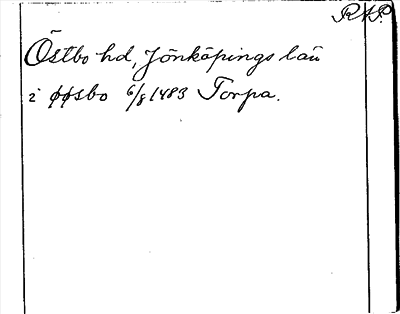 RAP.
Östbo hd, Jönköpings län
i øøsbo 6/8 1483 Torpa.